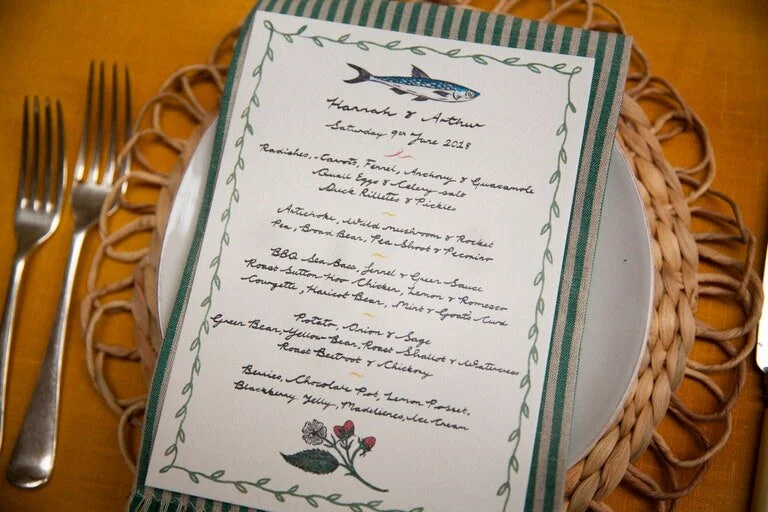 Hannah & Arthur
Saturday 9th June 2018
Radishes, Carrots, Fennel, Anchovy & Guacamole
Quail Eggs & Celery Salt
Duck Rilletes & Pickles
Artichoke, Wild mushroom & Rocket
Pea, Broad Bean, Pea Shoot & Pecorino
BBQ Sea Bass, Fennel & Green Sauce
Roast Sutton Hoo Chicken, Lemon & Romesco
Courgette, Haricot Bean, Mint & Goats Curd
Potato, Onion & Sage
Green Bean, Yellow Bean, Roast Shallot & Watercress
Roast Beetroot & Chickory
Berries, Chocolate Pot, Lemon Posset,
Blackberry Jelly, Madeleines, Ice Cream